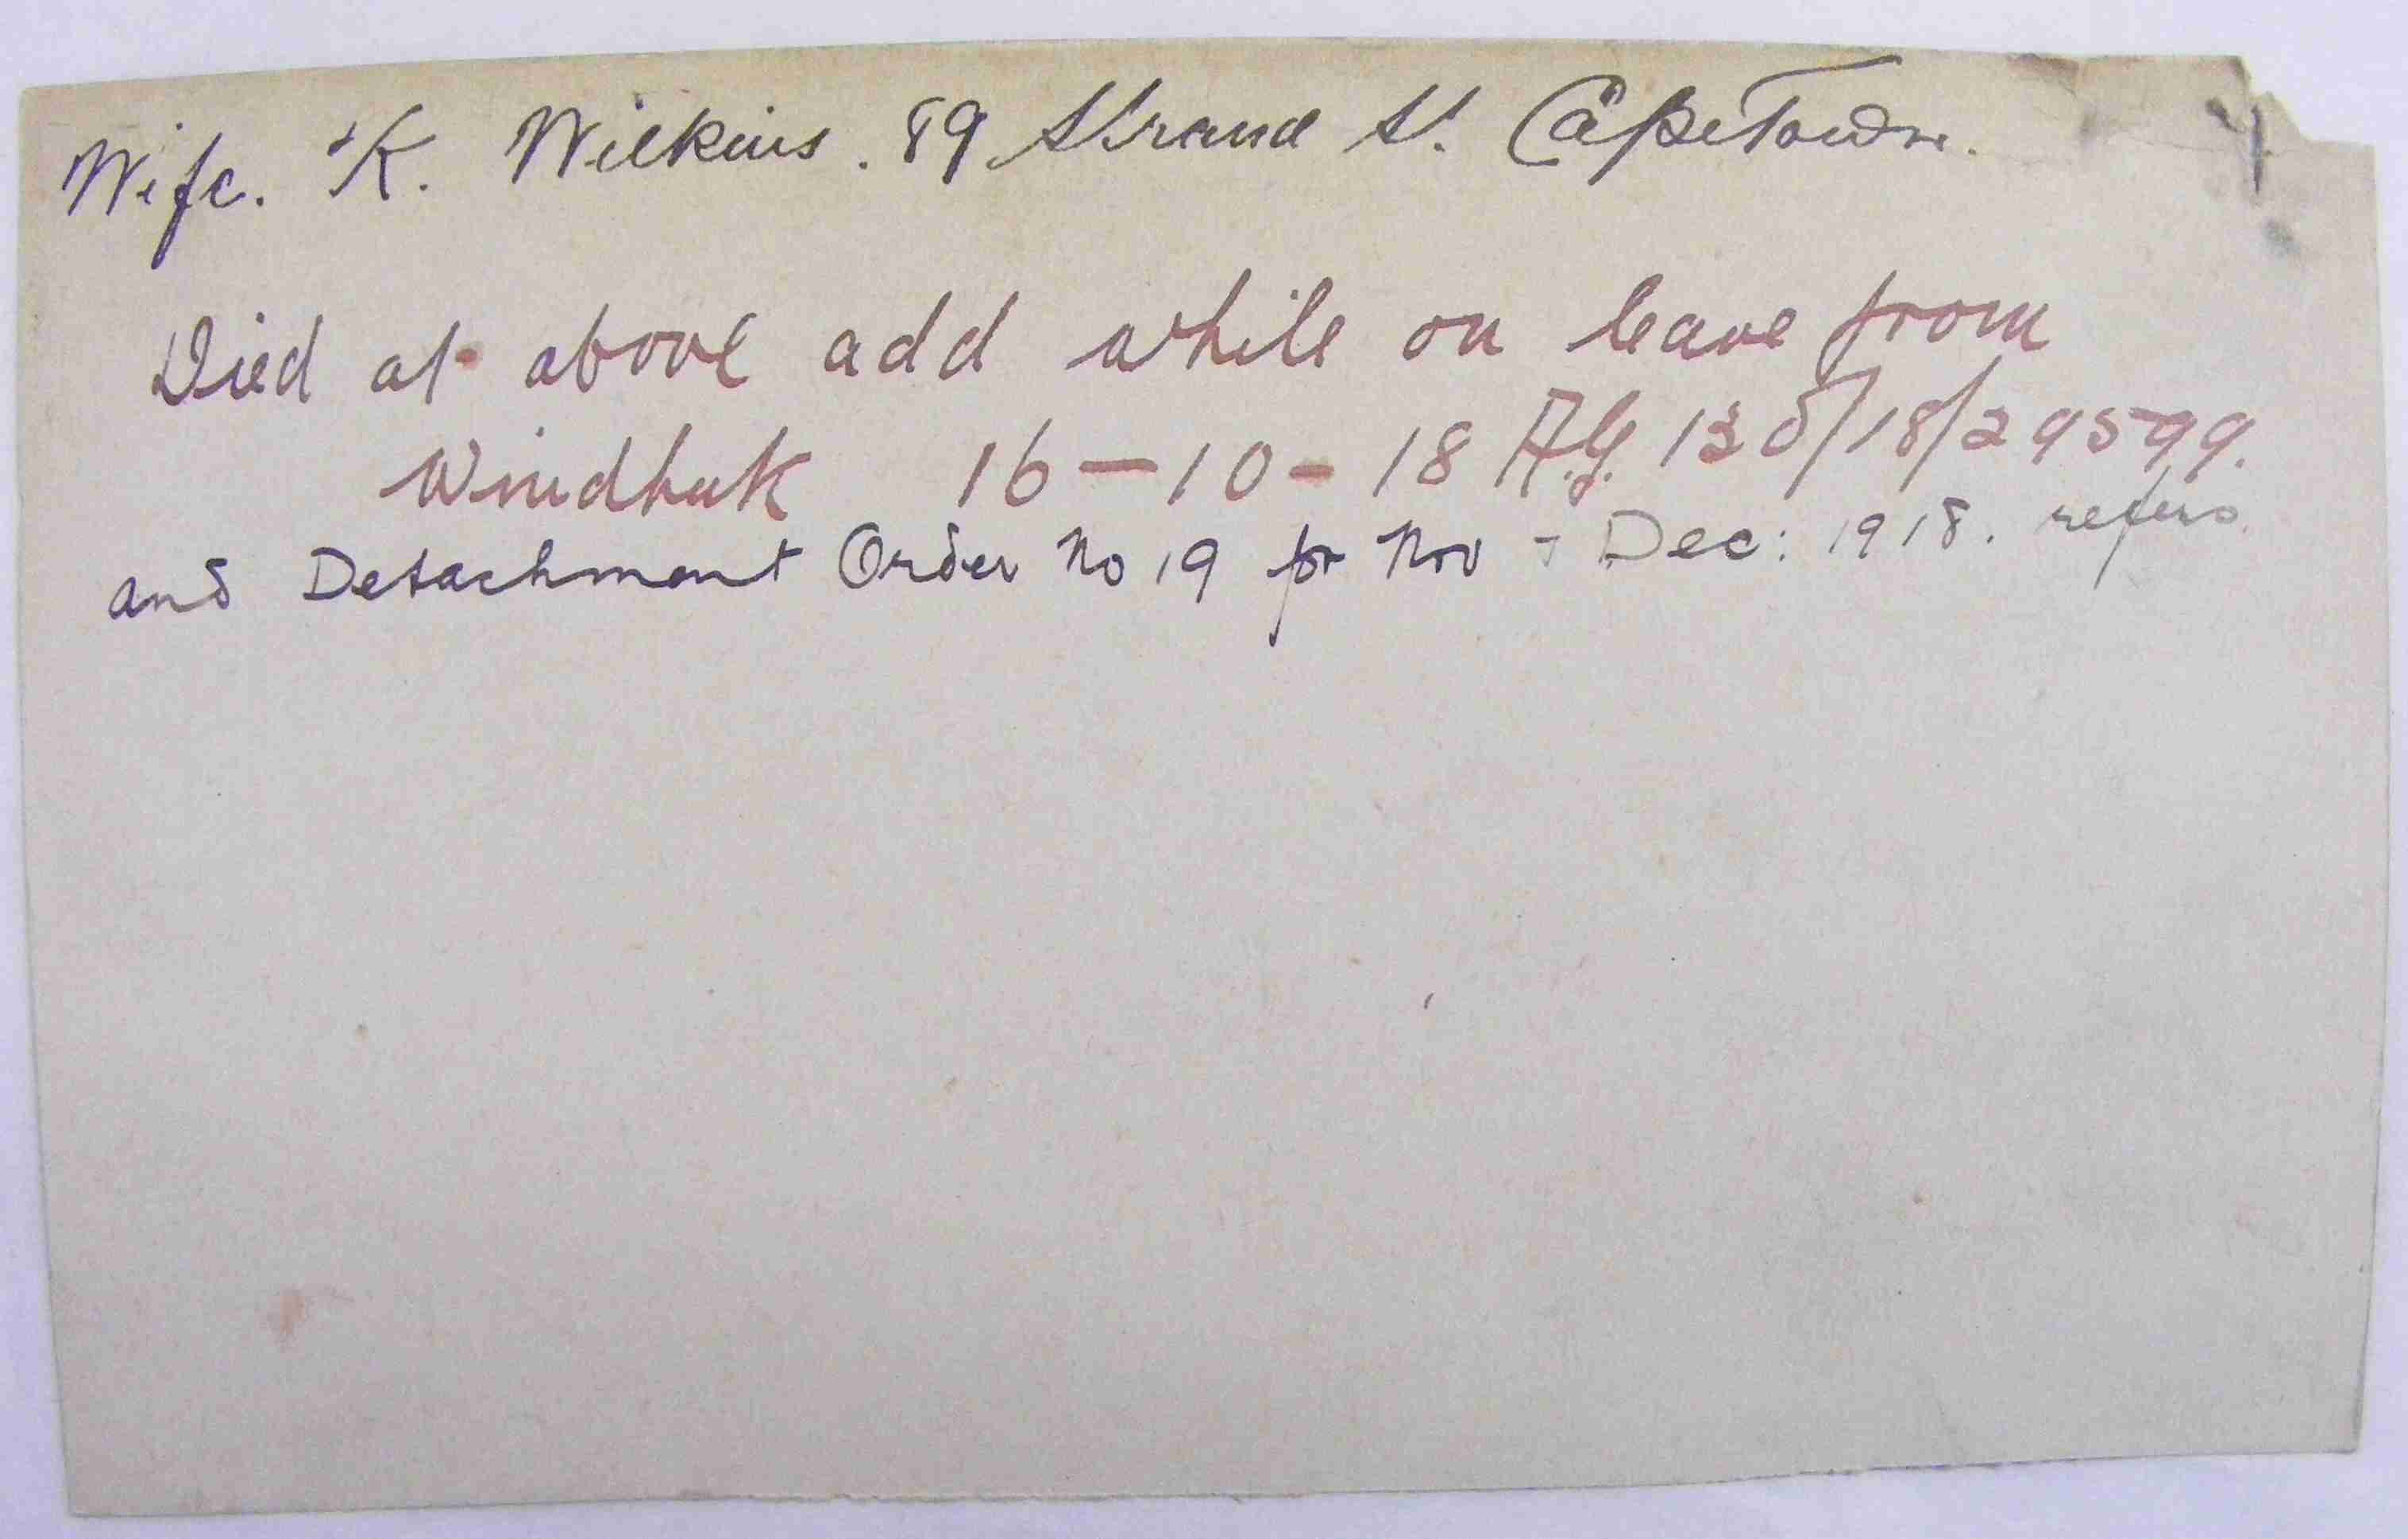 Wife. K. Wilkins. 89 Strand St. CapeTown.
Died at above add while on leave from
Windhuk 16-10-18 A.G. 130/18/29599.
and Detachment Order No 19 for Nov + Dec: 1918. refers